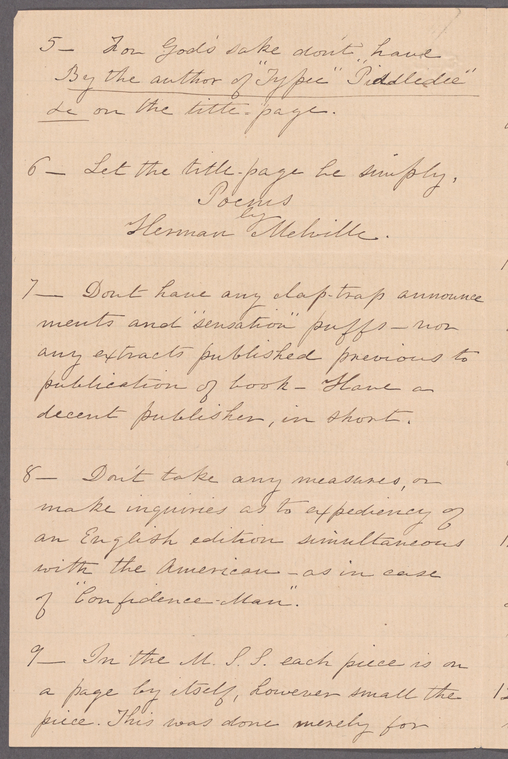 5— For God's sake don't have
By the author of "Typee" "Piddledee"
&c on the title-page.
6— Let the title-page be simply,
Poems
by
Herman Melville.
7— Don't have any clap-trap announce
ments and "sensation" puffs — nor
any extracts published previous to
publication of book — Have a
decent publisher, in short.
8— Don't take any measures, or
make inquiries as to expediency of
an English edition simultaneous
with the American — as in case
of "Confidence-Man".
9— In the M. S. S. each piece is on
a page by itself, however small the
piece. This was done merely for